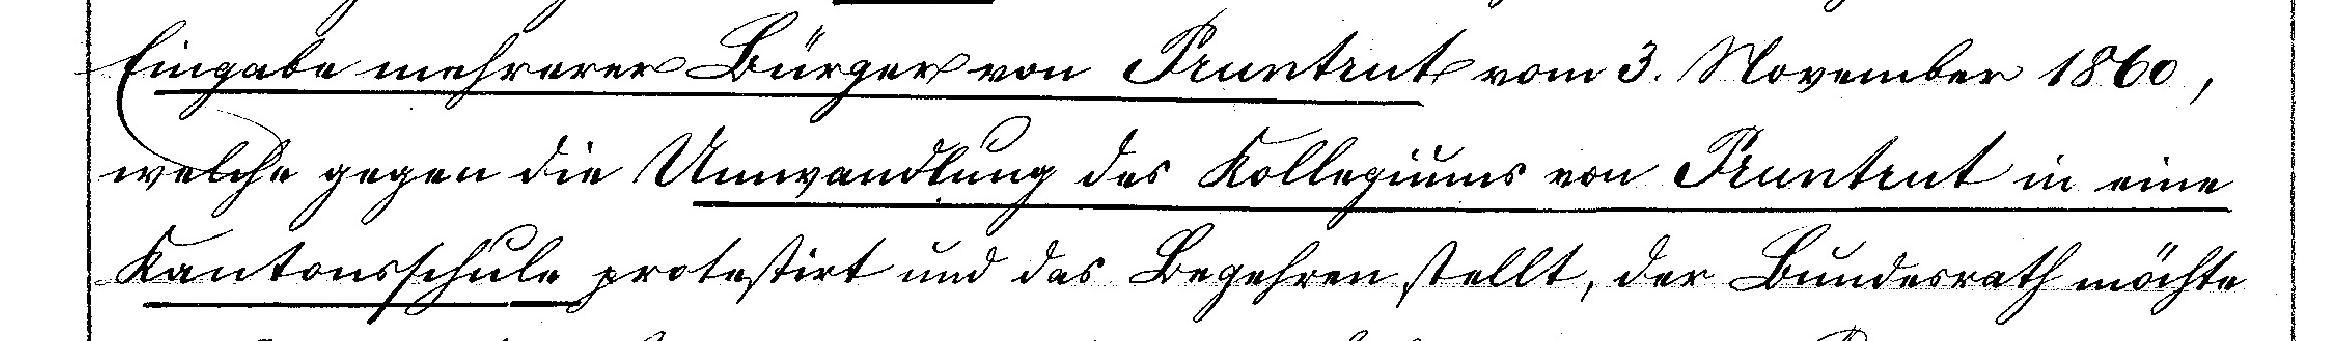 Eingabe mehrerer Bürger von Pruntrut vom 3. November 1860,
welche gegen die Umwandlung des Kollegiums von Pruntrut in eine
Kantonsschule protestirt und das Begehren stellt, der Bundesrath möchte